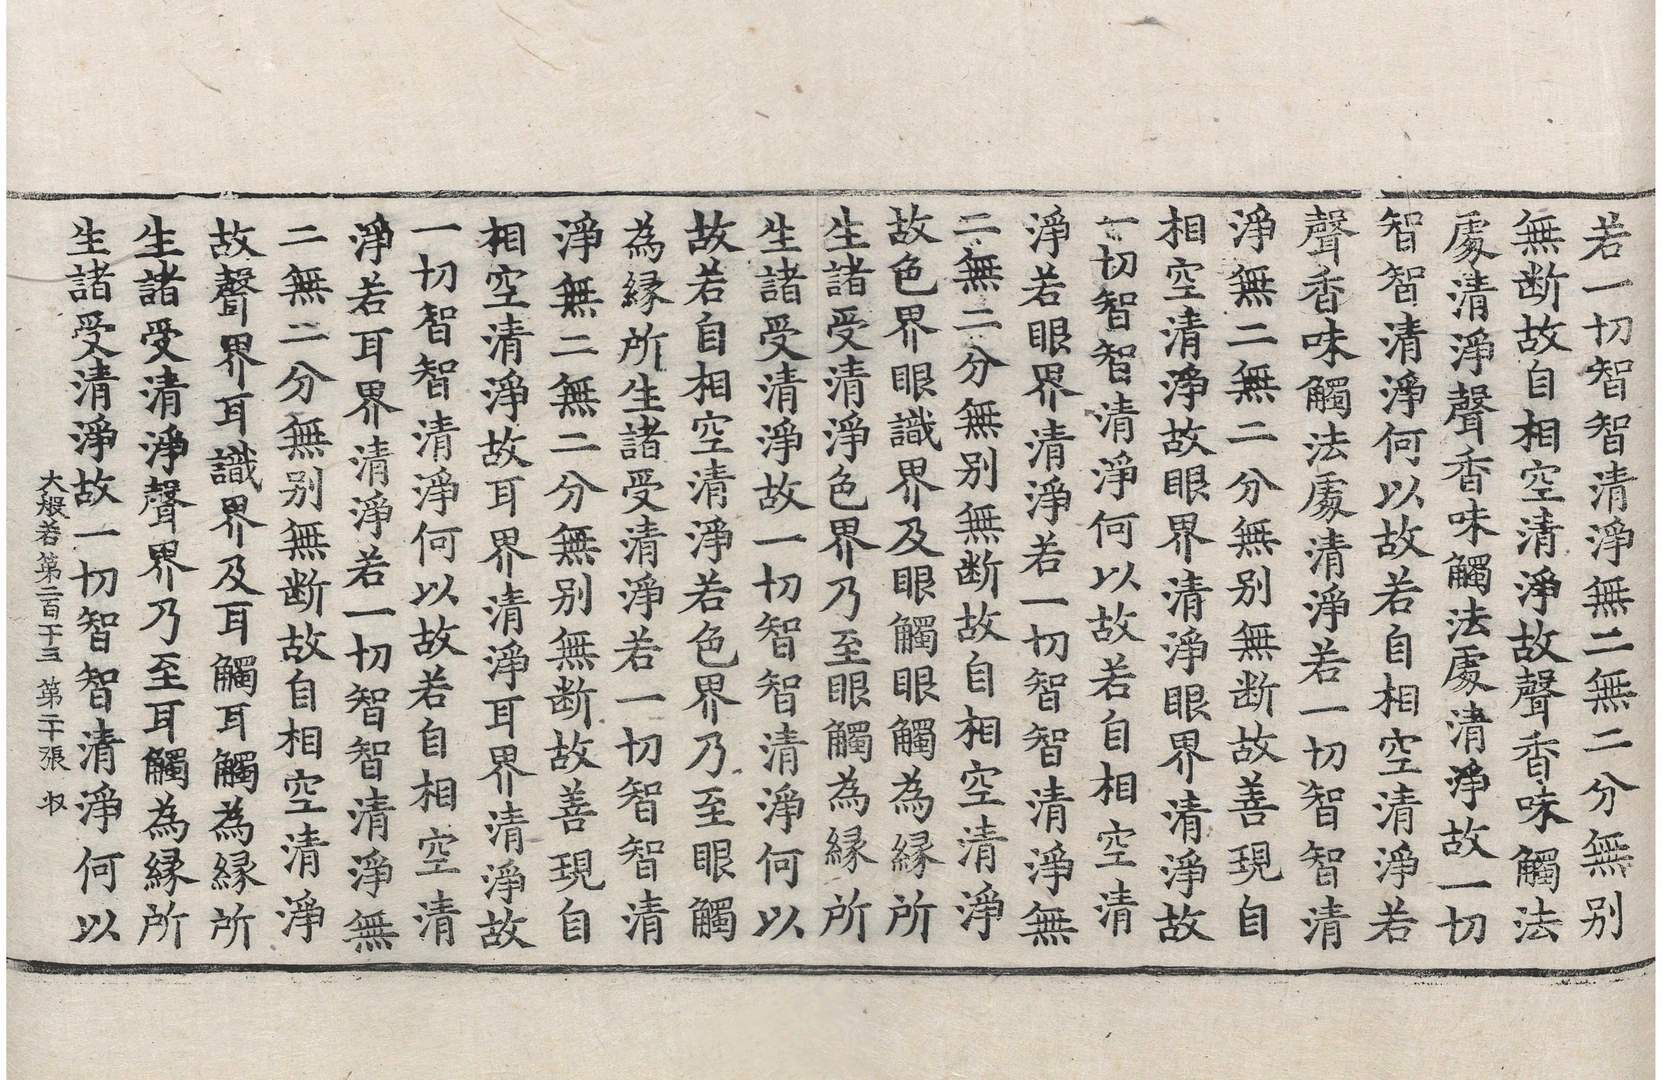 若一切智智清淨無二無二分無别
無断故自相空清淨故聲香味觸法
處清淨聲香味觸法處清淨故一切
智智清淨何以故若自相空清淨若
聲香味觸法處清淨若一切智智清
淨無二無二分無别無断故善現自
相空清淨故眼界清淨眼界清淨故
一切智智清淨何以故若自相空清
淨若眼界清淨若一切智智清淨無
二無二分無别無断故自相空清淨
故色界眼識界及眼觸眼觸為縁所
生諸受清淨色界乃至眼觸為縁所
生諸受清淨故一切智智清淨何以
故若自相空清淨若色界乃至眼觸
為縁所生諸受清淨若一切智智清
淨無二無二分無别無断故善現自
相空清淨故耳界清淨耳界清淨故
一切智智清淨何以故若自相空清
淨若耳界清淨若一切智智清淨無
二無二分無别無断故自相空清淨
故聲界耳識界及耳觸耳觸為縁所
生諸受清淨聲界乃至耳觸為縁所
生諸受清淨故一切智智清淨何以
大般若第二百十三 第二十張 㭍